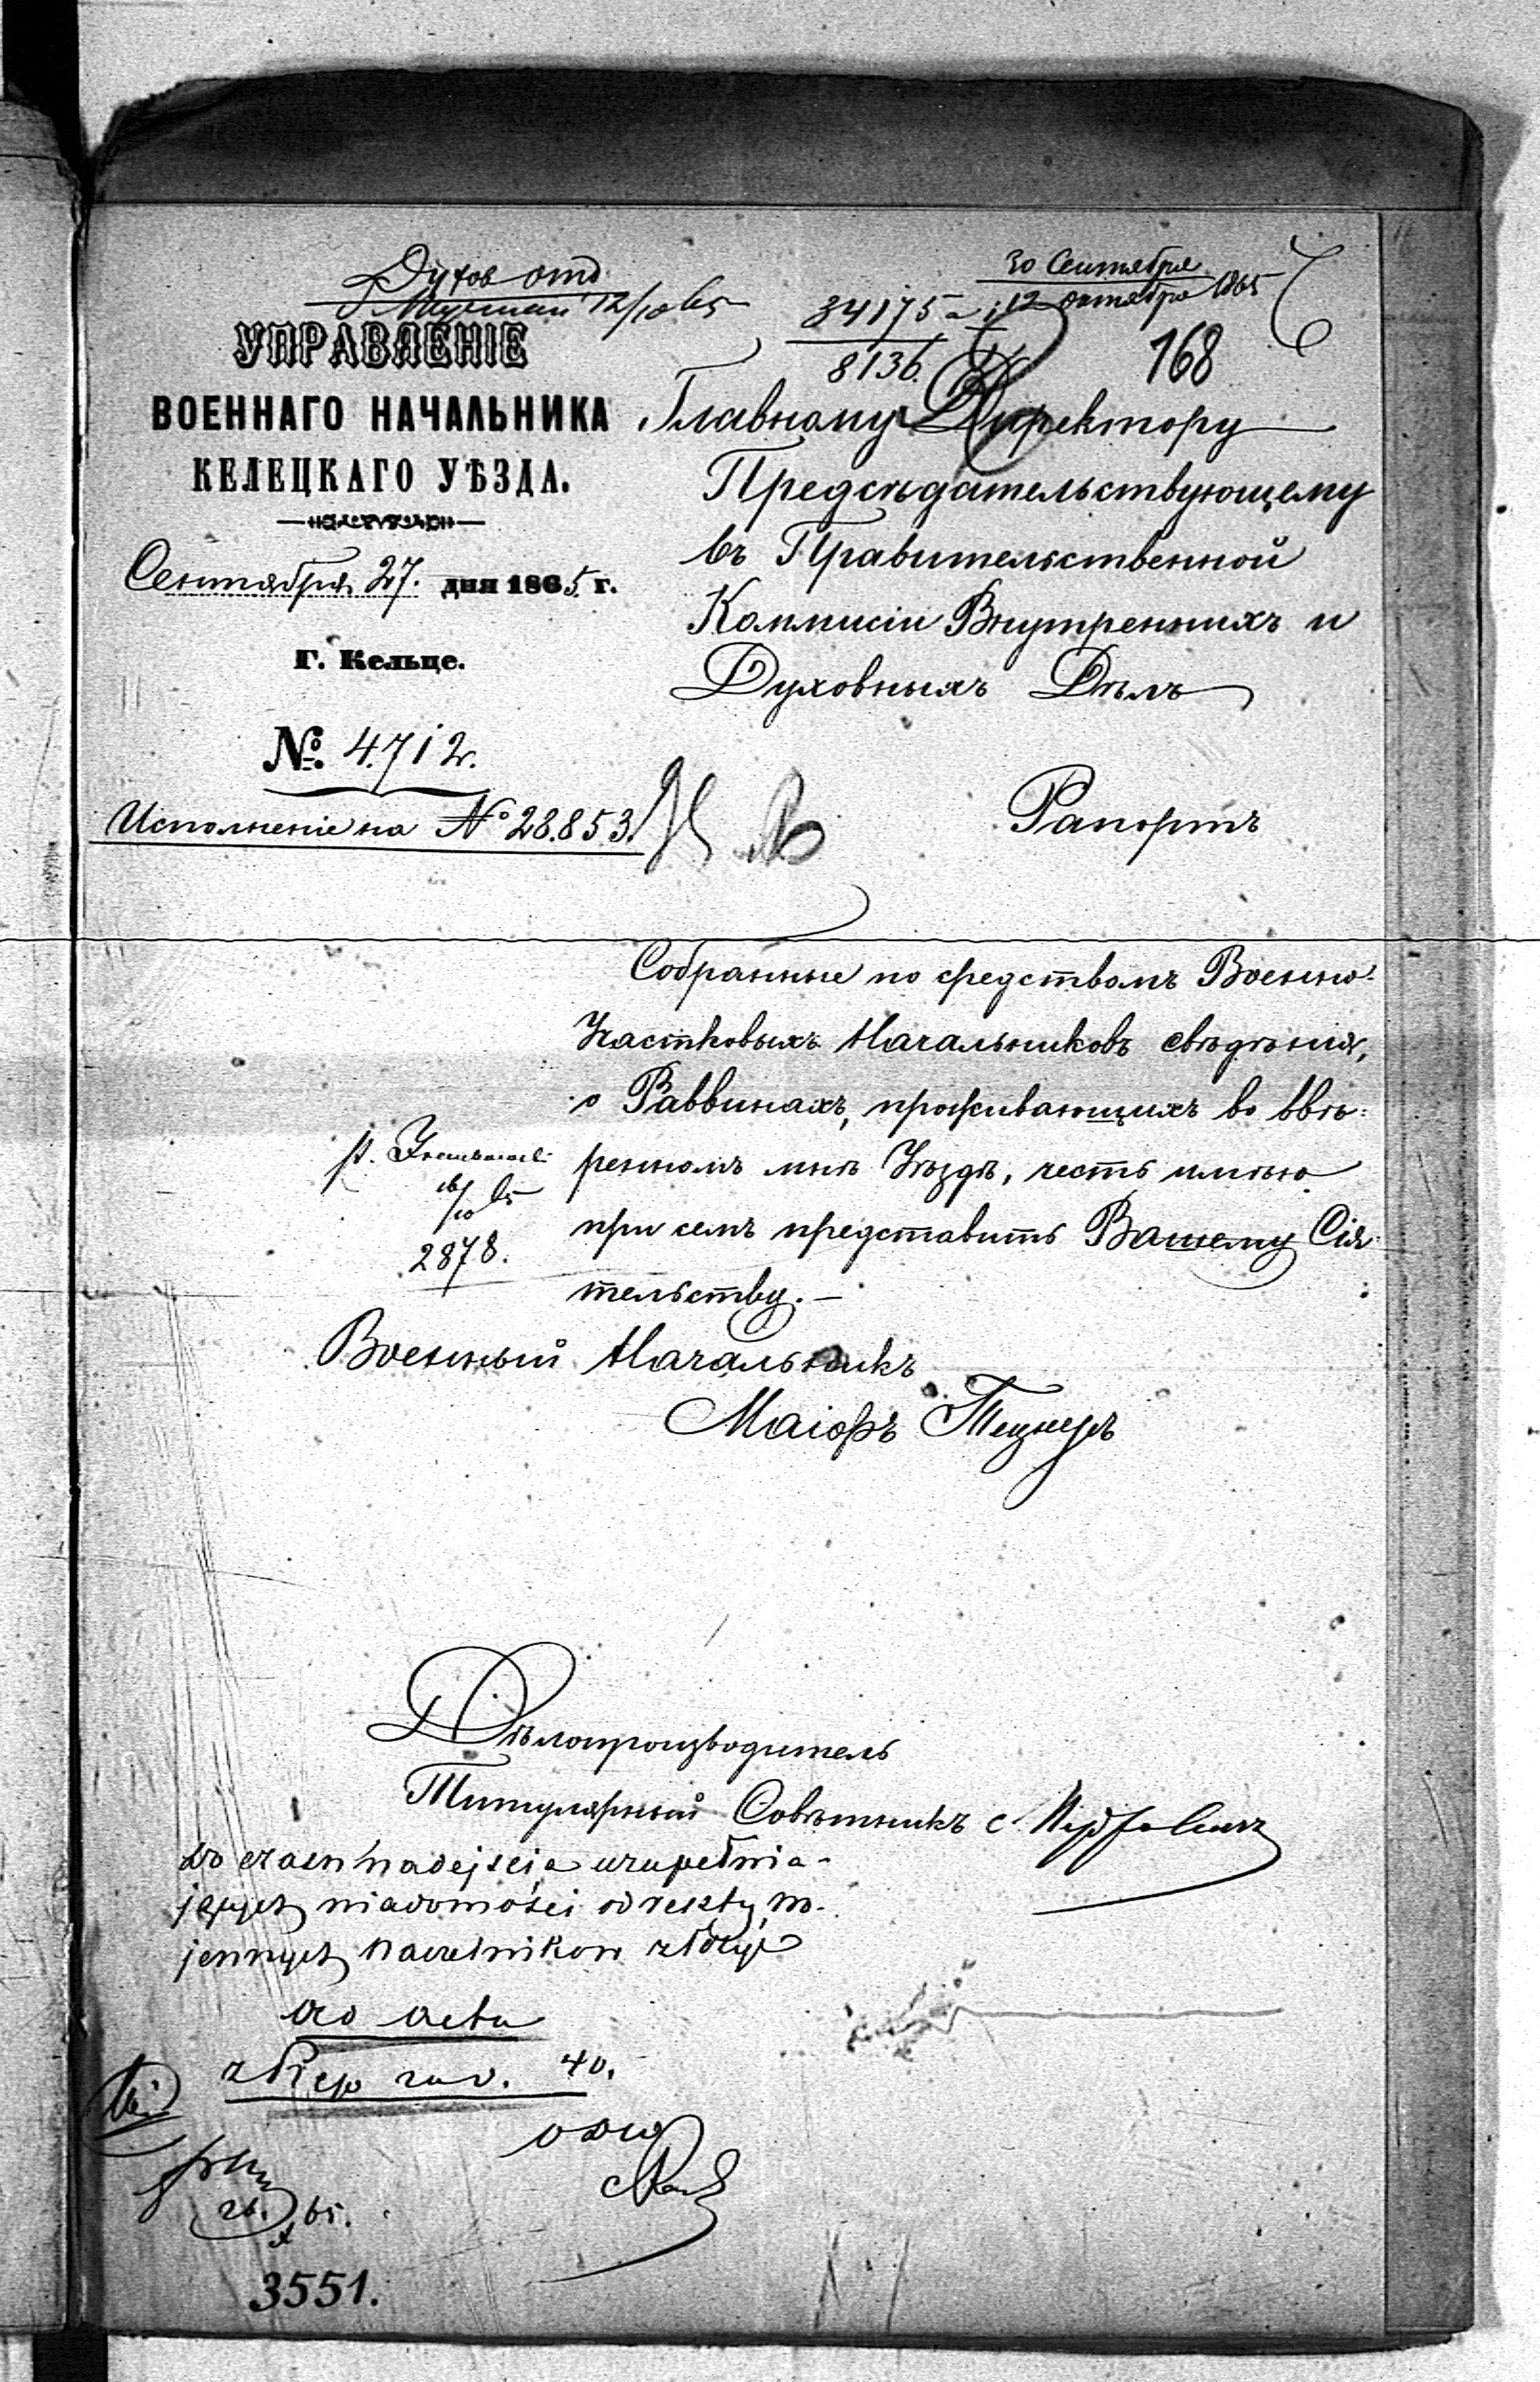 Духов отд
12/10 65
30 Сентября
12 октября 1865
34175
8136.
168
УПРАВЛЕНІЕ
ВОЕННАГО НАЧАЛЬНИКА
КЕЛЕЦКАГО УѢЗДА.
Сентября 27. дня 1865 г.
Г. Кельце.
№ 4712.
Исполненіе на № 28.853.
Главному Директору
Предсѣдательствующему
въ Правительственной
Коммисіи Внутреннихъ и
Духовныхъ Дѣлъ
Рапортъ
Собранные по средствомъ Военно-
Участковыхъ Начальниковъ свѣдѣнія,
о Раввинахъ, проживающихъ во ввѣ-
ренномъ мнѣ Уѣздѣ, честь имѣю
при семъ представить Вашему Сія-
тельству.—
2878.
Военный Начальникъ
Маіоръ
Дѣлопроизводитель
Титулярный Совѣтникъ
do czasu nadejścia uzupełnia-
jących wiadomości od reszty wo-
jennych Naczelników złożyć
do akt
40.
65.
3551.